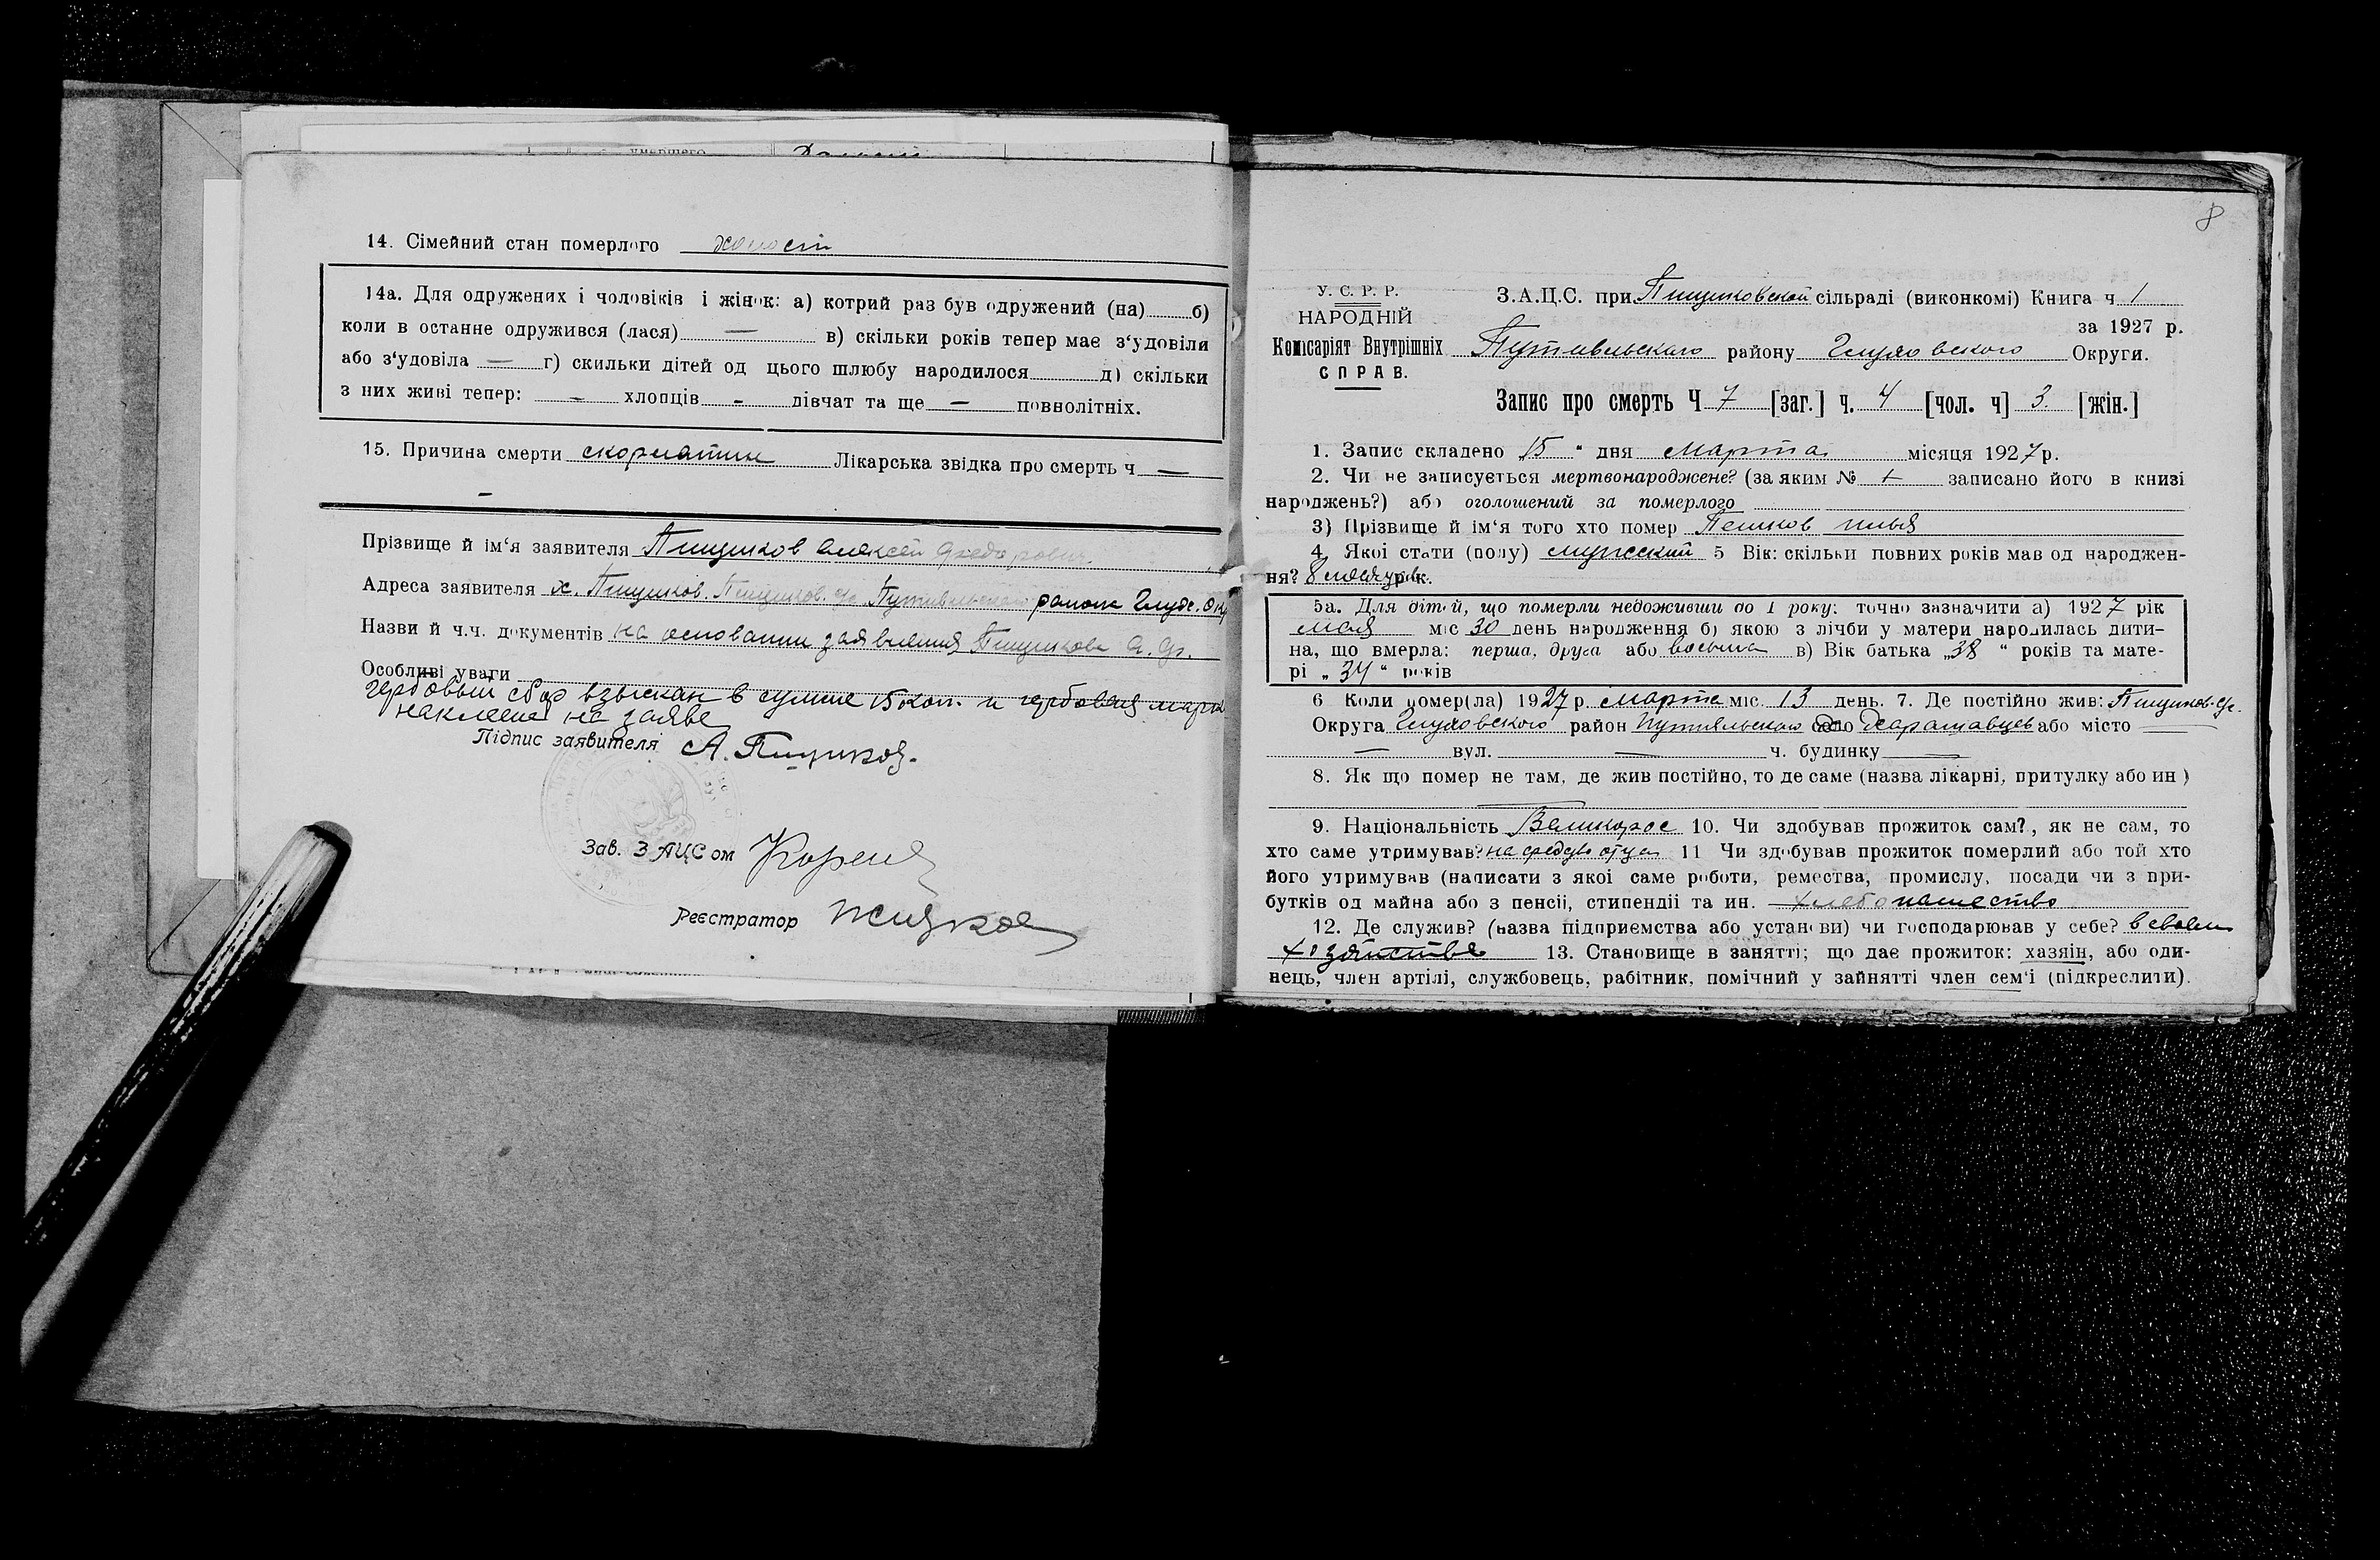 14. Сімейний стан померлого холост
14а. Для одружених і чоловіків і жінок: а) котрий раз був одружений (на) б)
коли в останне одружився (лася) — в) скільки років тепер має з‘удовіли
або з‘удовіла — г) скильки дітей од цього шлюбу народилося д) скільки
з них живі тепер: – хлопців - дівчат та ще – повнолітніх.
15. Причина смерти скорлатин Лікарська звідка про смерть ч —
–
Прізвище й ім‘я заявителя Пищиков Алексей Федорович
Адреса заявителя х. Пищиков. Пищиков. с/с Путивльского района Глух. Окр
Назви й ч.ч. документів на основании заявления Пищикова А. Ф.
Особливі уваги
гербовый сбор взыскан в сумме 15 коп. и гербовая марка
наклеена на заяве
Підпис заявителя А. Пищиков.
Зав. ЗАЦСом
Реєстратор
8
У. С. Р. Р.
НАРОДНІЙ
Комісаріят Внутрішніх
СПРАВ.
З.А.Ц.С. при Пищиковской сільраді (виконкомі) Книга ч 1
за 1927 р.
Путивльскаго району Глуховского Округи.
Запис про смерть Ч 7 [заг.] ч. 4 [чол. ч] 3. [жін.]
1. Запис складено „15 “ дня Марта місяця 1927 р.
2. Чи не записується мертвонароджене? (за яким № записано його в книзі
народжень?) або оголошений за померлого
3) Прізвище й ім‘я того хто помер Пешков илья
4. Якої стати (полу) мужеский 5 Вік: скільки повних років мав од народжен-
ня? 8 рок.
5а. Для дітей, що померли недоживши до 1 року: точно зазначити а) 1927 рік
мая міс 30 день народження б) якою з лічби у матери народилась дити-
на, що вмерла: перша, друга або восьма в) Вік батька „38 “ років та мате-
рі „ 34 “ років
6 Коли помер(ла) 1927 р марта міс. 13 день. 7. Де постійно жив: Пищиков. с/с.
Округа Глуховского район Путивльского село або місто —
— вул. — ч. будинку —
8. Як що помер не там, де жив постійно, то де саме (назва лікарні, притулку або ин )
9. Національність Великорос 10. Чи здобував прожиток сам?, як не сам, то
хто саме утримував? на средств отца 11 Чи здобував прожиток померлий або той хто
його утримував (написати з якоі саме роботи, ремества, промислу, посади чи з при-
бутків од майна або з пенсіі, стипендіі та ин. хлебопашество
12. Де служив? (назва підприемства або установи) чи господарював у себе? в своем
хозяйстве 13. Становище в занятті; що дає прожиток: хазяін, або оди-
нець, член артілі, службовець, рабітник, помічний у зайнятті член сем‘і (підкреслити).